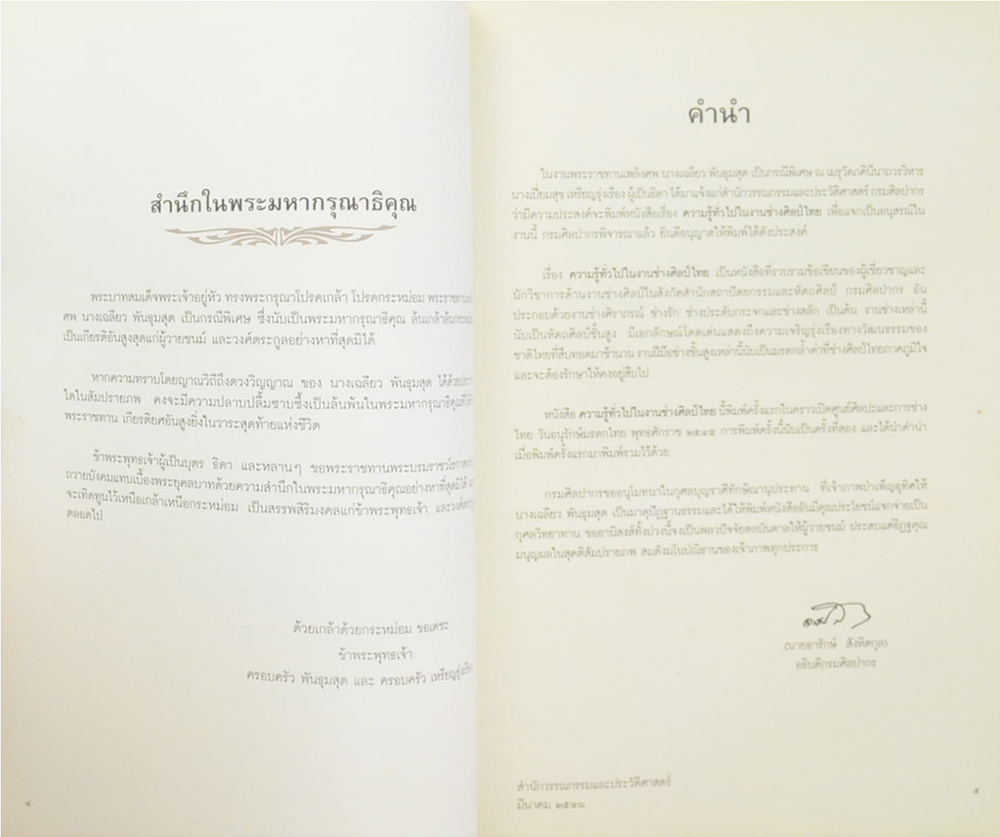 สำนึกในพระมหากรุณาธิคุณ
พระบาทสมเด็จพระเจ้าอยู่หัว ทรงพระกรุณาโปรดเกล้า โปรดกระหม่อม พระราชทานเพลิง
ศพ นางเฉลียว พันธุมสุต เป็นกรณีพิเศษ ซึ่งนับเป็นพระมหากรุณาธิคุณ ล้นเกล้าล้นกระหม่อม
เป็นเกียรติอันสูงสุดแก่ผู้วายชนม์ และวงศ์ตระกูลอย่างหาที่สุดมิได้
หากความทราบโดยญาณวิถีถึงดวงวิญญาณ ของ นางเฉลียว พันธุมสุต ได้ด้วยประการ
ใดในสัมปรายภพ คงจะมีความปลาบปลื้มซาบซึ้งเป็นล้นพ้นในพระมหากรุณาธิคุณที่ได้รับ
พระราชทาน เกียรติยศอันสูงยิ่งในวาระสุดท้ายแห่งชีวิต
ข้าพระพุทธเจ้าผู้เป็นบุตร ธิดา และหลานๆ ขอพระราชทานพระบรมราชวโรกาส
ถวายบังคมแทบเบื้องพระยุคลบาทด้วยความสำนึกในพระมหากรุณาธิคุณอย่างหาที่สุดมิได้
จะเทิดทูนไว้เหนือเกล้าเหนือกระหม่อม เป็นสรรพสิริมงคลแก่ข้าพระพุทธเจ้า และวงศ์ตระกูล
ตลอดไป
ด้วยเกล้าด้วยกระหม่อม ขอเดชะ
ข้าพระพุทธเจ้า
ครอบครัว พันธุมสุต และ ครอบครัว เหรียญรุ่งเรือง
๔
คำนำ
ในงานพระราชทานเพลิงศพ นางเฉลียว พันธุมสุต เป็นกรณีพิเศษ ณ เมรุวัดเทวินีนาถวรวิหาร
นางเปี่ยมสุข เหรียญรุ่งเรือง ผู้เป็นธิดา ได้มาแจ้งแก่สำนักวรรณกรรมและประวัติศาสตร์ กรมศิลปากร
ว่ามีความประสงค์จะพิมพ์หนังสือเรื่อง ความรู้ทั่วไปในงานช่างศิลป์ไทย เพื่อแจกเป็นอนุสรณ์ใน
งานนี้ กรมศิลปากรพิจารณาแล้ว ยินดีอนุญาตให้พิมพ์ได้ดังประสงค์
เรื่อง ความรู้ทั่วไปในงานช่างศิลป์ไทย เป็นหนังสือที่รวบรวมข้อเขียนของผู้เชี่ยวชาญและ
นักวิชาการด้านงานช่างศิลป์ในสังกัดสำนักสถาปัตยกรรมและหัตถศิลป์ กรมศิลปากร อัน
ประกอบด้วยงานช่างศิราภรณ์ ช่างรัก ช่างประดับกระจกและช่างสลัก เป็นต้น งานช่างเหล่านี้
นับเป็นหัตถศิลป์ชั้นสูง มีเอกลักษณ์โดดเด่นแสดงถึงความเจริญรุ่งเรืองทางวัฒนธรรมของ
ชาติไทยที่สืบทอดมาช้านาน งานฝีมือช่างชั้นสูงเหล่านี้นับเป็นมรดกล้ำค่าที่ช่างศิลป์ไทยภาคภูมิใจ
และจะต้องรักษาให้คงอยู่สืบไป
หนังสือ ความรู้ทั่วไปในงานช่างศิลป์ไทย นี้พิมพ์ครั้งแรกในคราวเปิดศูนย์ศิลปะและการช่าง
ไทย วันอนุรักษ์มรดกไทย พุทธศักราช ๒๕๔๕ การพิมพ์ครั้งนี้นับเป็นครั้งที่สอง และได้นำคำนำ
เมื่อพิมพ์ครั้งแรกมาพิมพ์รวมไว้ด้วย
กรมศิลปากรขออนุโมทนาในกุศลบุญราศีทักษิณานุประทาน ที่เจ้าภาพบำเพ็ญอุทิศให้
นางเฉลียว พันธุมสุต เป็นมาตุปัฏฐานธรรมและได้ให้พิมพ์หนังสืออันมีคุณประโยชน์แจกจ่ายเป็น
กุศลวิทยาทาน ขออานิสงส์ทั้งปวงนี้จงเป็นพลวปัจจัยดลบันดาลให้ผู้วายชนม์ ประสบแต่อิฏฐคุณ
มนุญผลในสุคติสัมปรายภพ สมดังมโนปณิธานของเจ้าภาพทุกประการ
(นายอารักษ์ สังหิตกุล)
อธิบดีกรมศิลปากร
สำนักวรรณกรรมและประวัติศาสตร์
มีนาคม ๒๕๔๘
๕